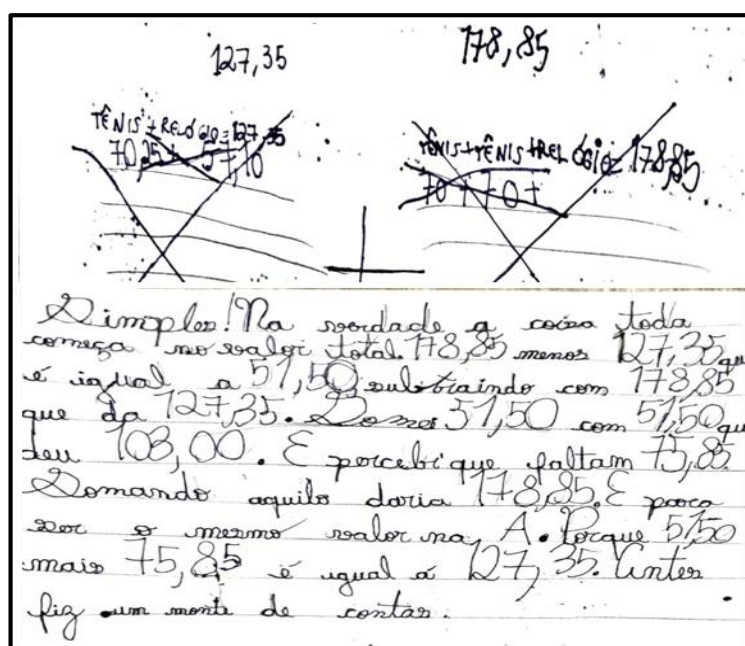 127,35
178,85
TÊNIS + RELÓGIO = 127,35
70,25 + 57,10
TÊNIS + TÊNIS + RELÓGIO = 178,85
70 + 70 +
Simples! Na verdade a coisa toda
começa no valor total. 178,85 menos 127,35 que
é igual a 51,50 subtraindo com 178,85
que da 127,35. Somei 51,50 com 51,50 que
deu 103,00. E percebi que faltam 75,85.
Somando aquilo daria 178,85. E para
ser o mesmo valor na A. Porque 51,50
mais 75,85 é igual á 127,35. Antes
fiz um monte de contas.